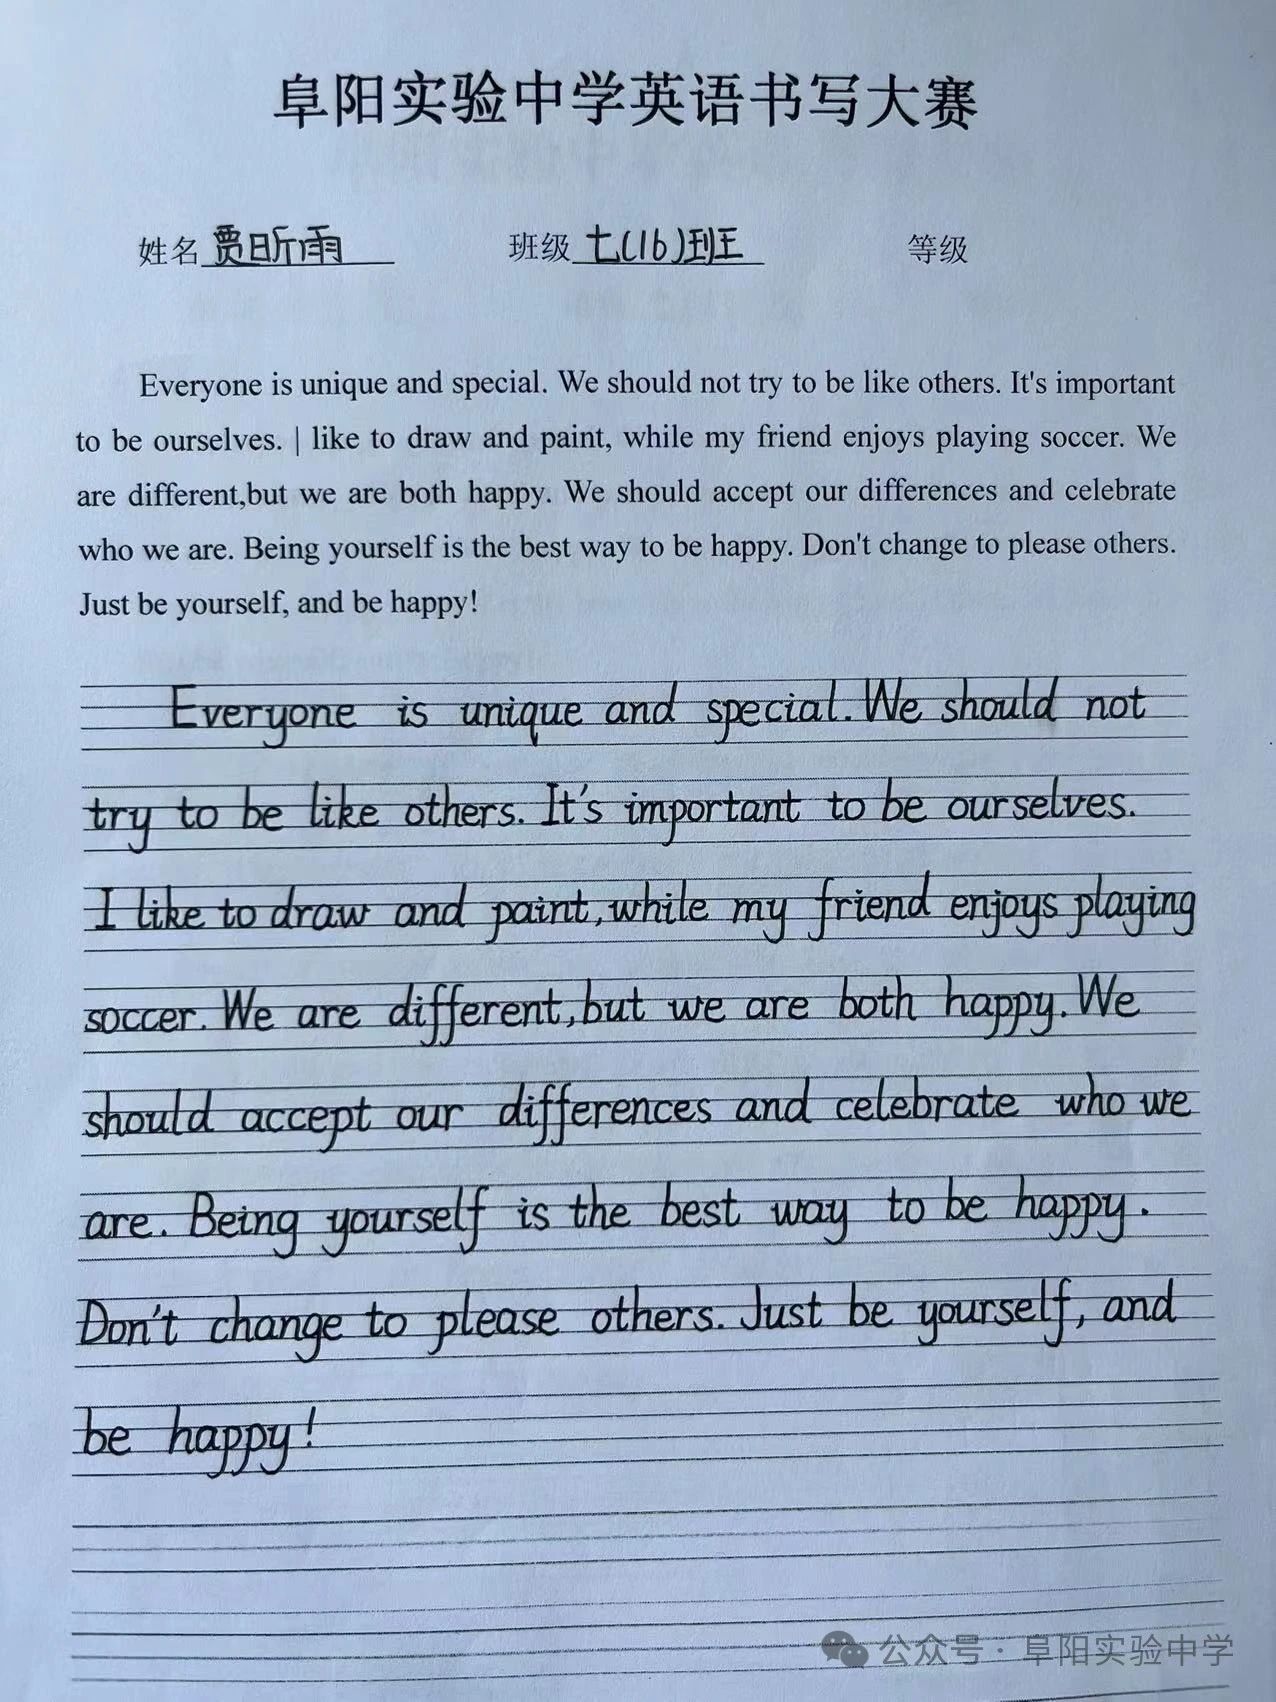 阜阳实验中学英语书写大赛
姓名 贾昕雨 班级 七(16)班 等级
Everyone is unique and special. We should not try to be like others. It's important
to be ourselves. | like to draw and paint, while my friend enjoys playing soccer. We
are different,but we are both happy. We should accept our differences and celebrate
who we are. Being yourself is the best way to be happy. Don't change to please others.
Just be yourself, and be happy!
Everyone is unique and special. We should not
try to be like others. It's important to be ourselves.
I like to draw and paint, while my friend enjoys playing
soccer. We are different, but we are both happy. We
should accept our differences and celebrate who we
are. Being yourself is the best way to be happy.
Don't change to please others. Just be yourself, and
be happy!
公众号 · 阜阳实验中学